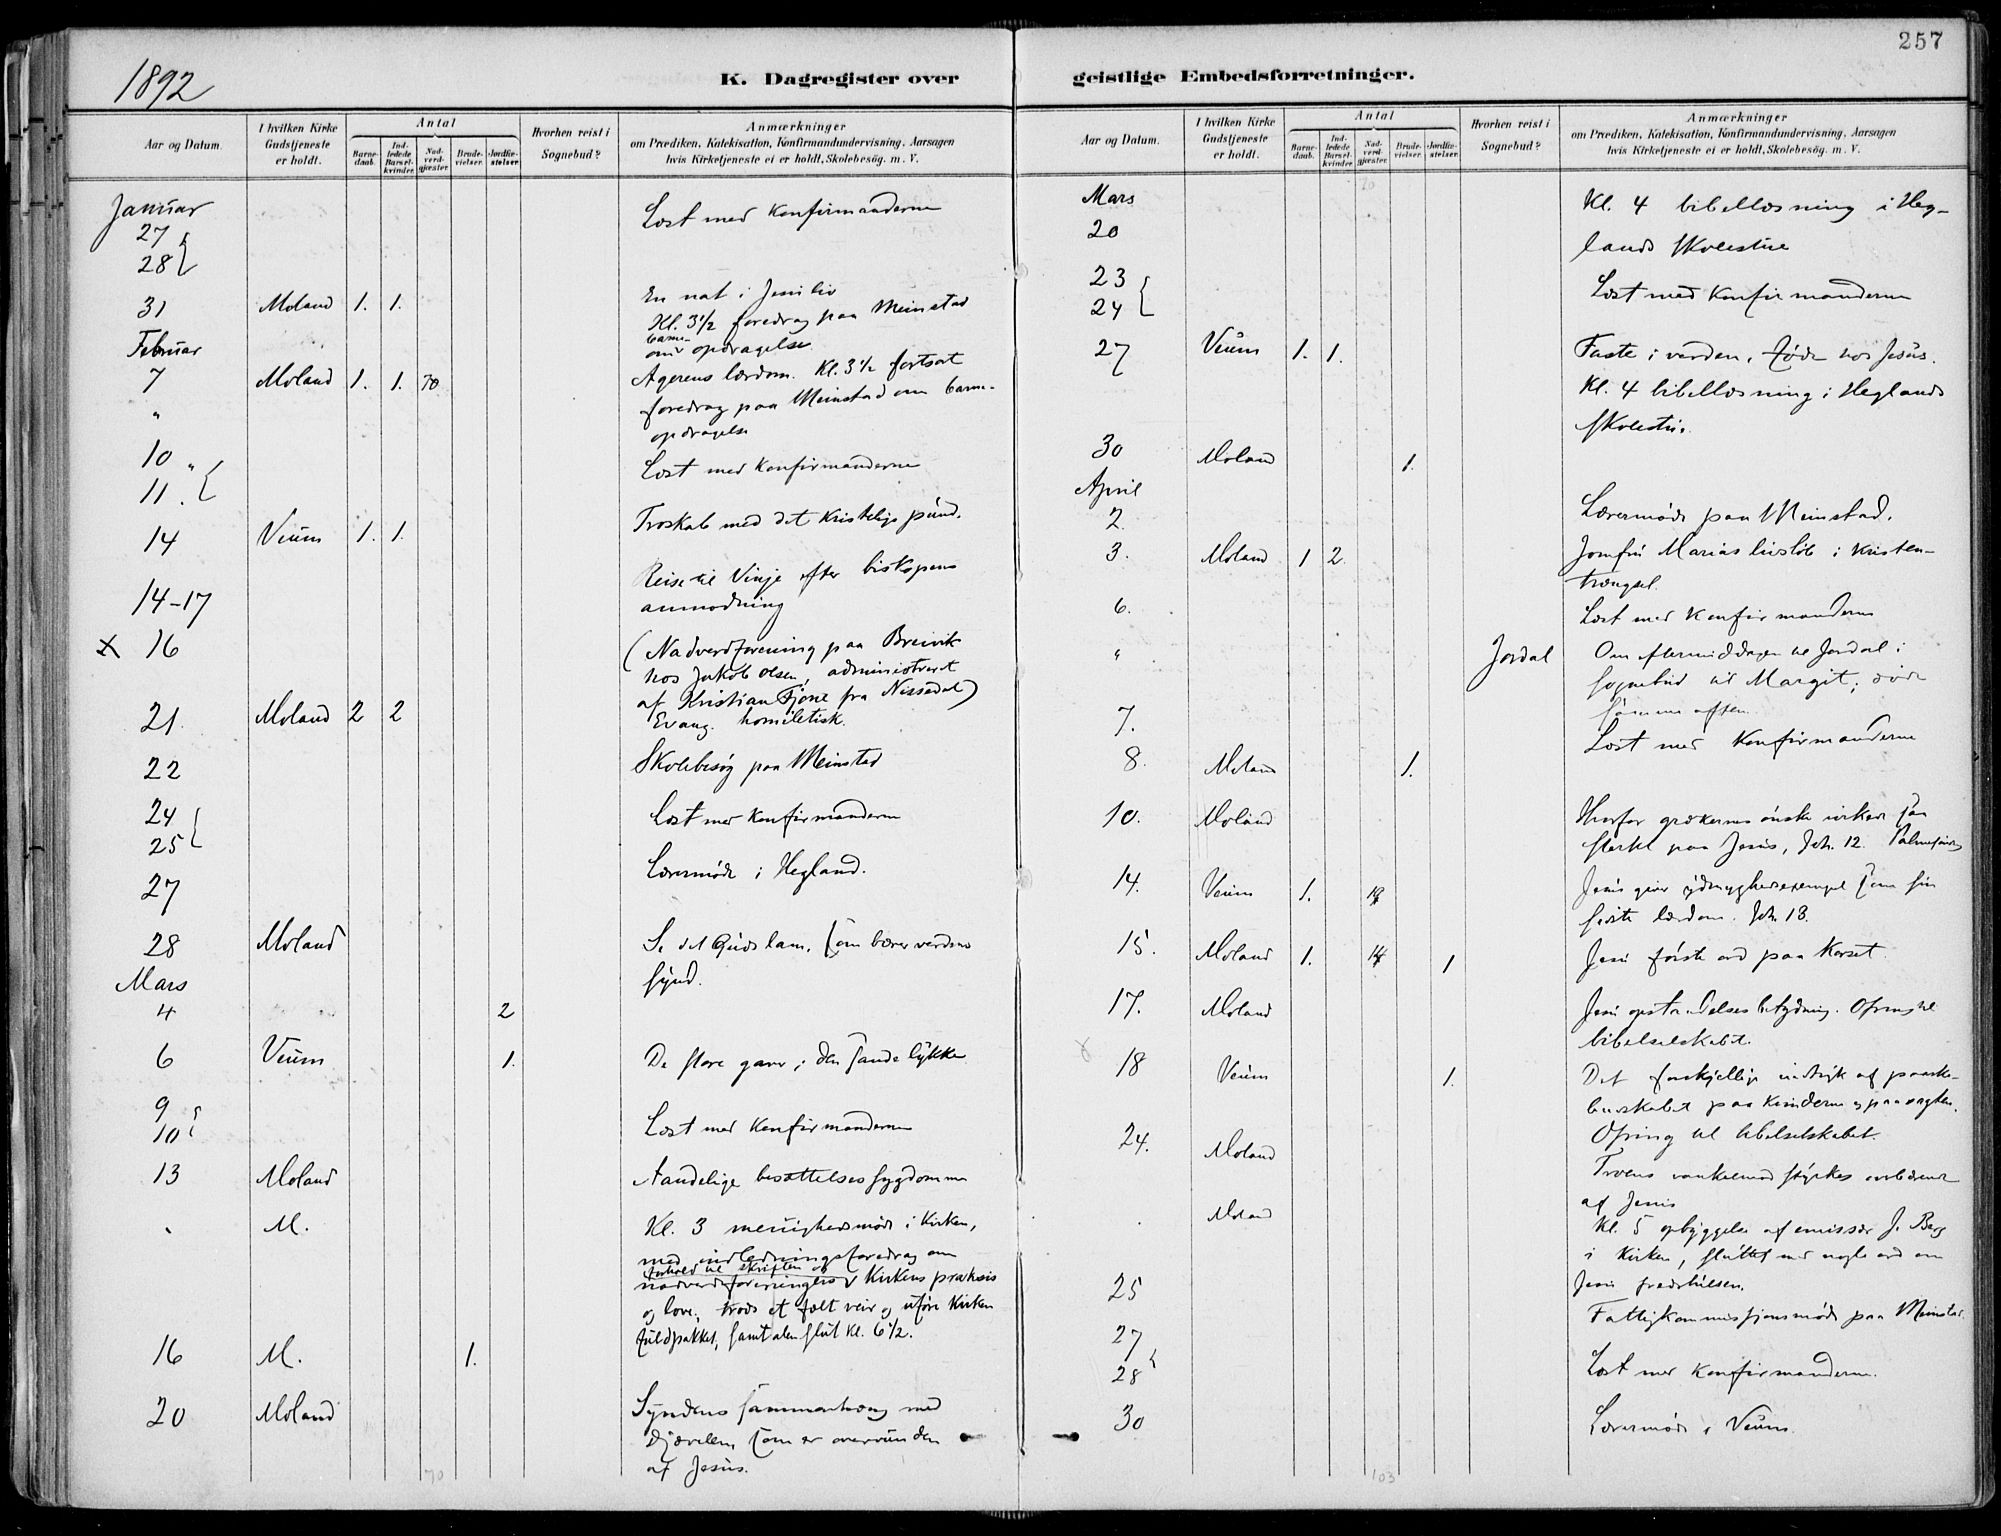 257
1892
K. Dagregister over geistlige Embedsforretninger.
Aar og Datum.
I hvilken Kirke Gudstjeneste er holdt.
Antal
Barnedaab.
Indledede Barselkvinder.
Nadverdgjæster.
Brudevielser.
Jordfæstelser.
Hvorhen reist i Sognebud?
Anmærkninger
om Prædiken, Katekisation, Konfirmandundervisning, Aarsagen
hvis Kirketjeneste ei er holdt, Skolebesög. m. V.
Januar
27
28
Læst med Konfirmanderne
31 Moland 1. 1. En nat i Jesu liv
Kl. 3½ foredrag paa Meinstad
om barneopdragelse
Februar
7 Moland 1. 1. 70 Agerens lærdom. Kl. 3½ fortsat
" foredrag paa Meinstad om barneopdragelse
10 "
11.
Læst med Konfirmanderne
14 Veum 1. 1. Troskab med det kristelige pund.
14-17 Reise til Vinje efter biskopens
anmodning
x 16 (Nadverdforening paa Breivik
hos Jakob Olsen, administreret
af Kristian Tjøne fra Nissedal)
21. Moland 2 2 Evang. homiletisk.
22 Skolebesøg paa Meinstad
24
25
Læst med Konfirmanderne
27 Lærermøde i Hegland.
28 Moland Se det Guds lam, som bærer verdens
synd.
Mars
4 2
6 Veum 1. De store gaver i den sande lykke
9
10
Læst med Konfirmanderne
13 Moland Aandelige besættelsessygdomme
" M. Kl. 3 menighedsmøde i Kirken,
med indledningsforedrag om
nadverdforeningers forhold til skriften og Kirkens praksis
og love; trods et fælt veir og uføre Kirken
fuldpakket, samtalen slut kl. 6½.
16 M. 1.
20 Moland Syndens sammenhæng med
Djævelen, som er overvunden
af Jesus.
70
Aar og Datum.
I hvilken Kirke Gudstjeneste er holdt.
Antal
Barnedaab.
Indledede Barselkvinder.
Nadverdgjæster.
Brudevielser.
Jordfæstelser.
Hvorhen reist i Sognebud?
Anmærkninger
om Prædiken, Katekisation, Konfirmandundervisning, Aarsagen
hvis Kirketjeneste ei er holdt, Skolebesög. m. V.
70
Mars
20 Kl. 4 bibellæsning i Heglands
skolestue
23
24
Læst med Konfirmanderne
27 Veum 1. 1. Faste i verden, føde hos Jesus.
Kl. 4 bibellæsning i Heglands
skolestue.
30 Moland 1.
April
2. Lærermøde paa Meinstad.
3. Moland 1 2. Jomfru Marias livsløb i kristentrængsel.
6. Læst med Konfirmanderne
" Jordal Om eftermiddagen til Jordal i
sognebud til Margit; døde
samme aften.
7. Læst med Konfirmanderne
8. Moland 1.
10. Moland Hvorfor grækernes ønske virkede saa
sterkt paa Jesus, Joh. 12. Palmesøndag
14. Veum 1. Jesus giver ydmyghedsexempel som sin
sidste lærdom. Joh. 13.
15. Moland 1. 1 Jesu første ord paa Korset.
17. Moland Jesu opstandelses betydning. Ofring til
bibelselskabet.
18 Veum 1. Det forskjellige indtryk af paaskebudskabet
paa kvinderne og paa vagten.
Ofring til bibelselskabet.
24. Moland Troens vankelmod styrkes
af Jesus
Moland Kl. 5 opbyggelse af emissær J. Berg
i Kirken, sluttet med nogle ord om
Jesu fredshilsen.
25 Fattigkommissjonsmøde paa Meinstad.
27
28
Læst med Konfirmanderne.
30 Lærermøde i Veum.
103